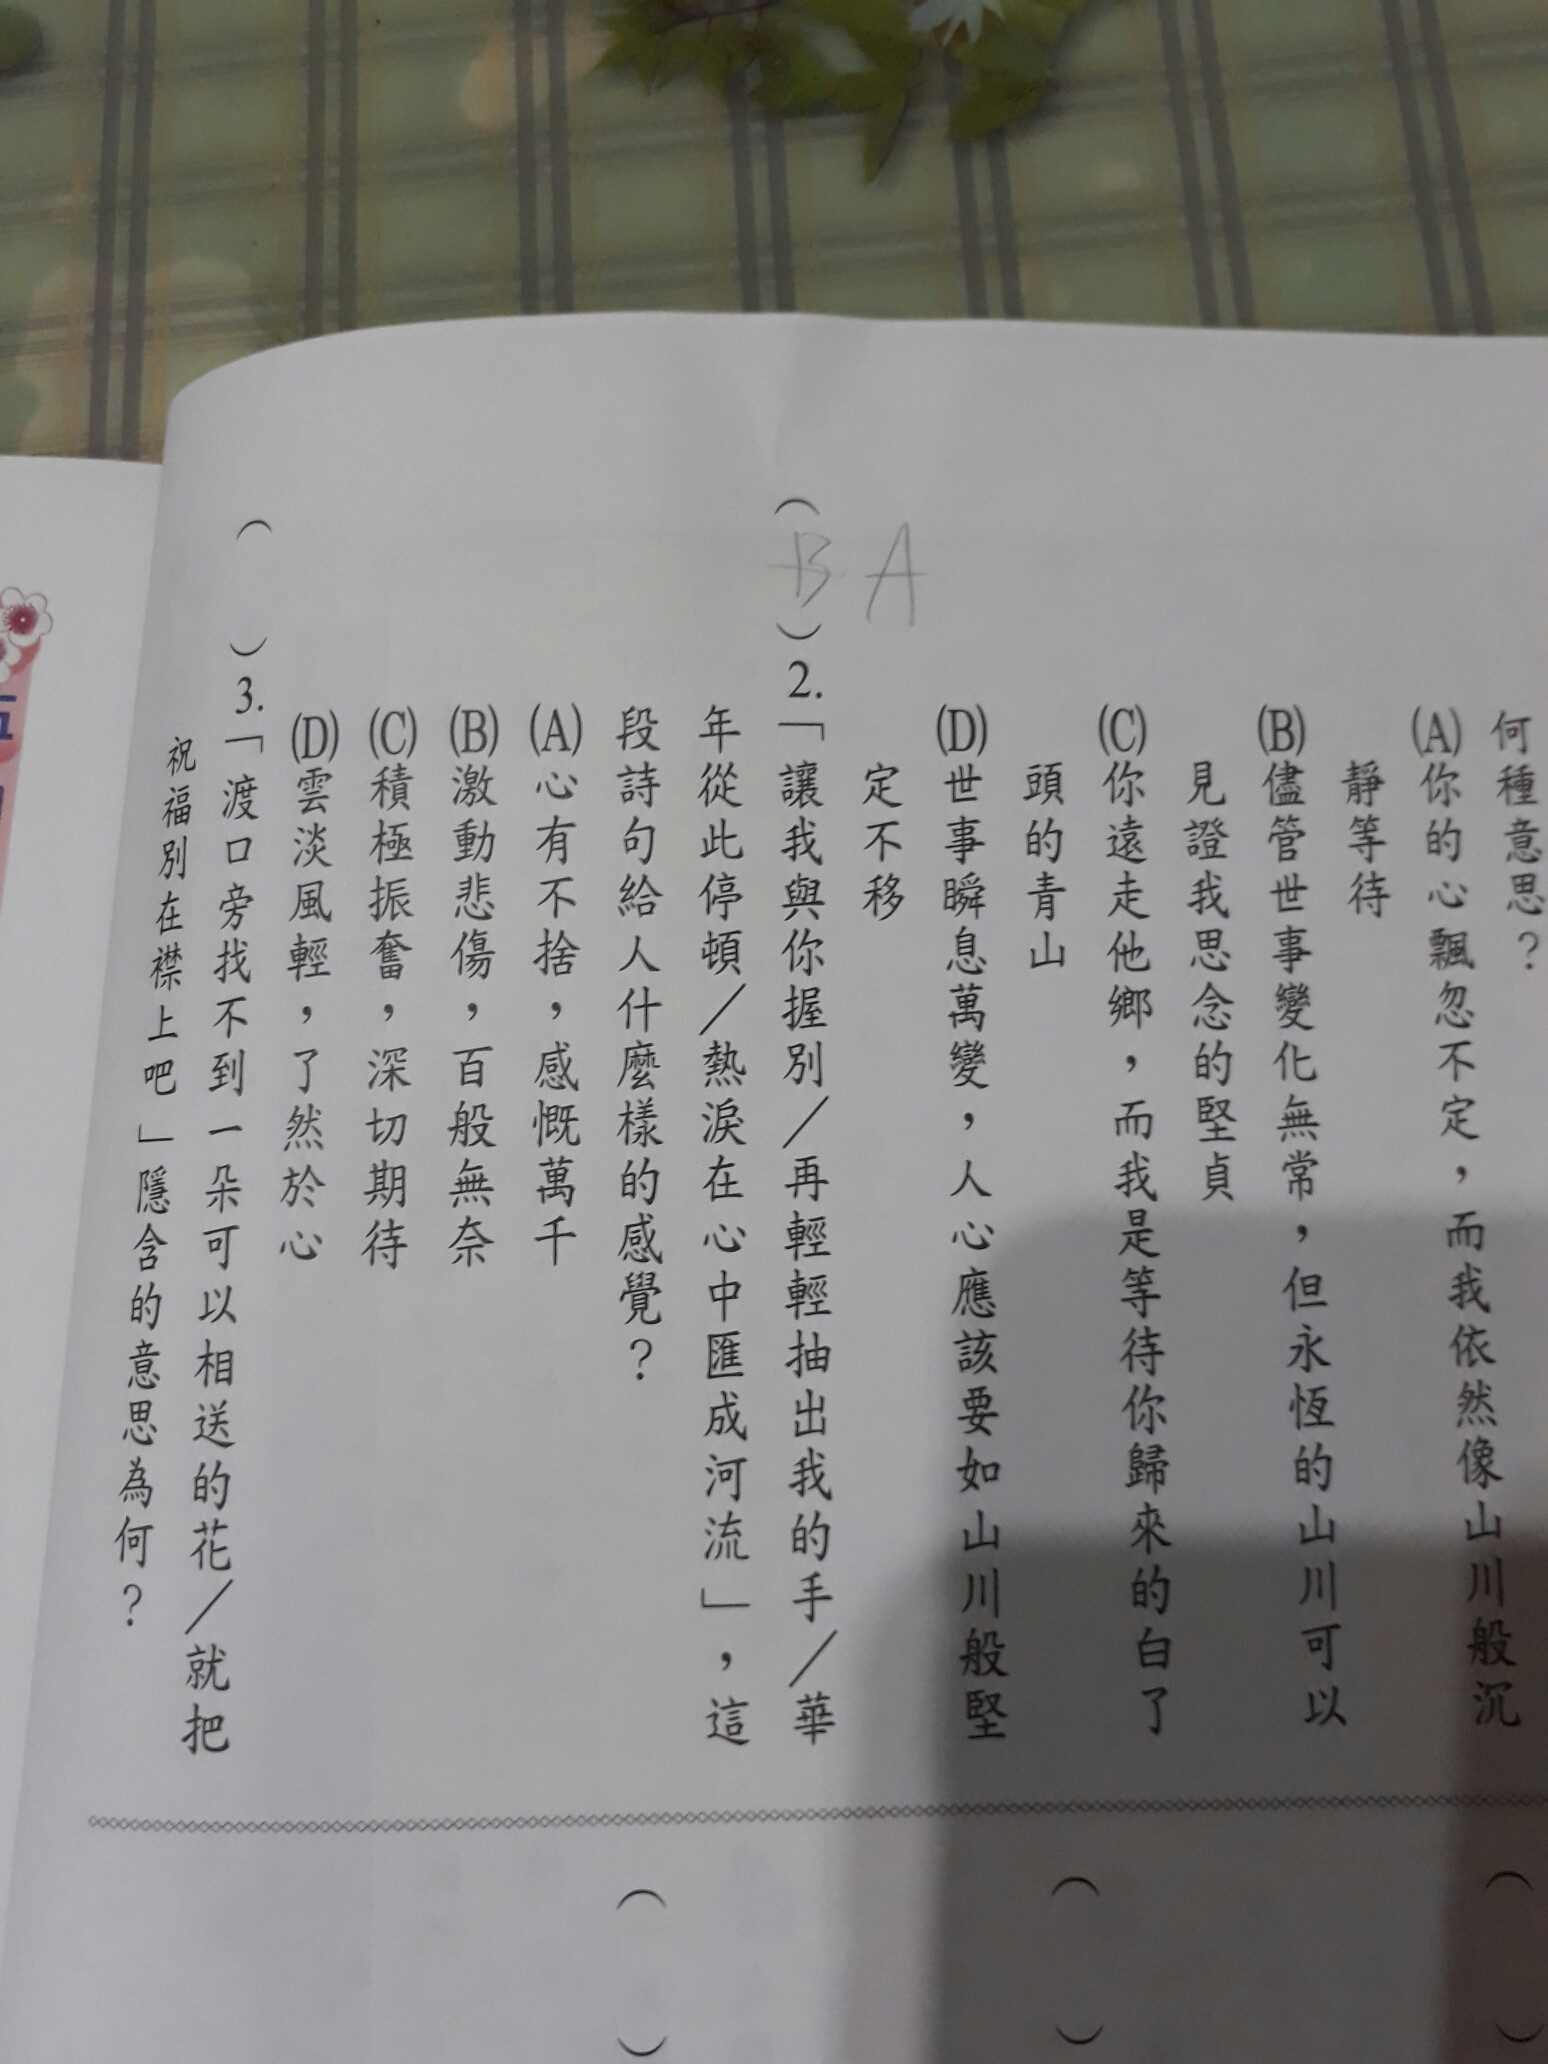 何種意思？
(A)你的心飄忽不定，而我依然像山川般沉
靜等待
(B)儘管世事變化無常，但永恆的山川可以
見證我思念的堅貞
(C)你遠走他鄉，而我是等待你歸來的白了
頭的青山
(D)世事瞬息萬變，人心應該要如山川般堅
定不移
A
（B）2.「讓我與你握別／再輕輕抽出我的手／華
年從此停頓／熱淚在心中匯成河流」，這
段詩句給人什麼樣的感覺？
(A)心有不捨，感慨萬千
(B)激動悲傷，百般無奈
(C)積極振奮，深切期待
(D)雲淡風輕，了然於心
（ ）3.「渡口旁找不到一朵可以相送的花／就把
祝福別在襟上吧」隱含的意思為何？
（ ）
（ ）
（ ）
五